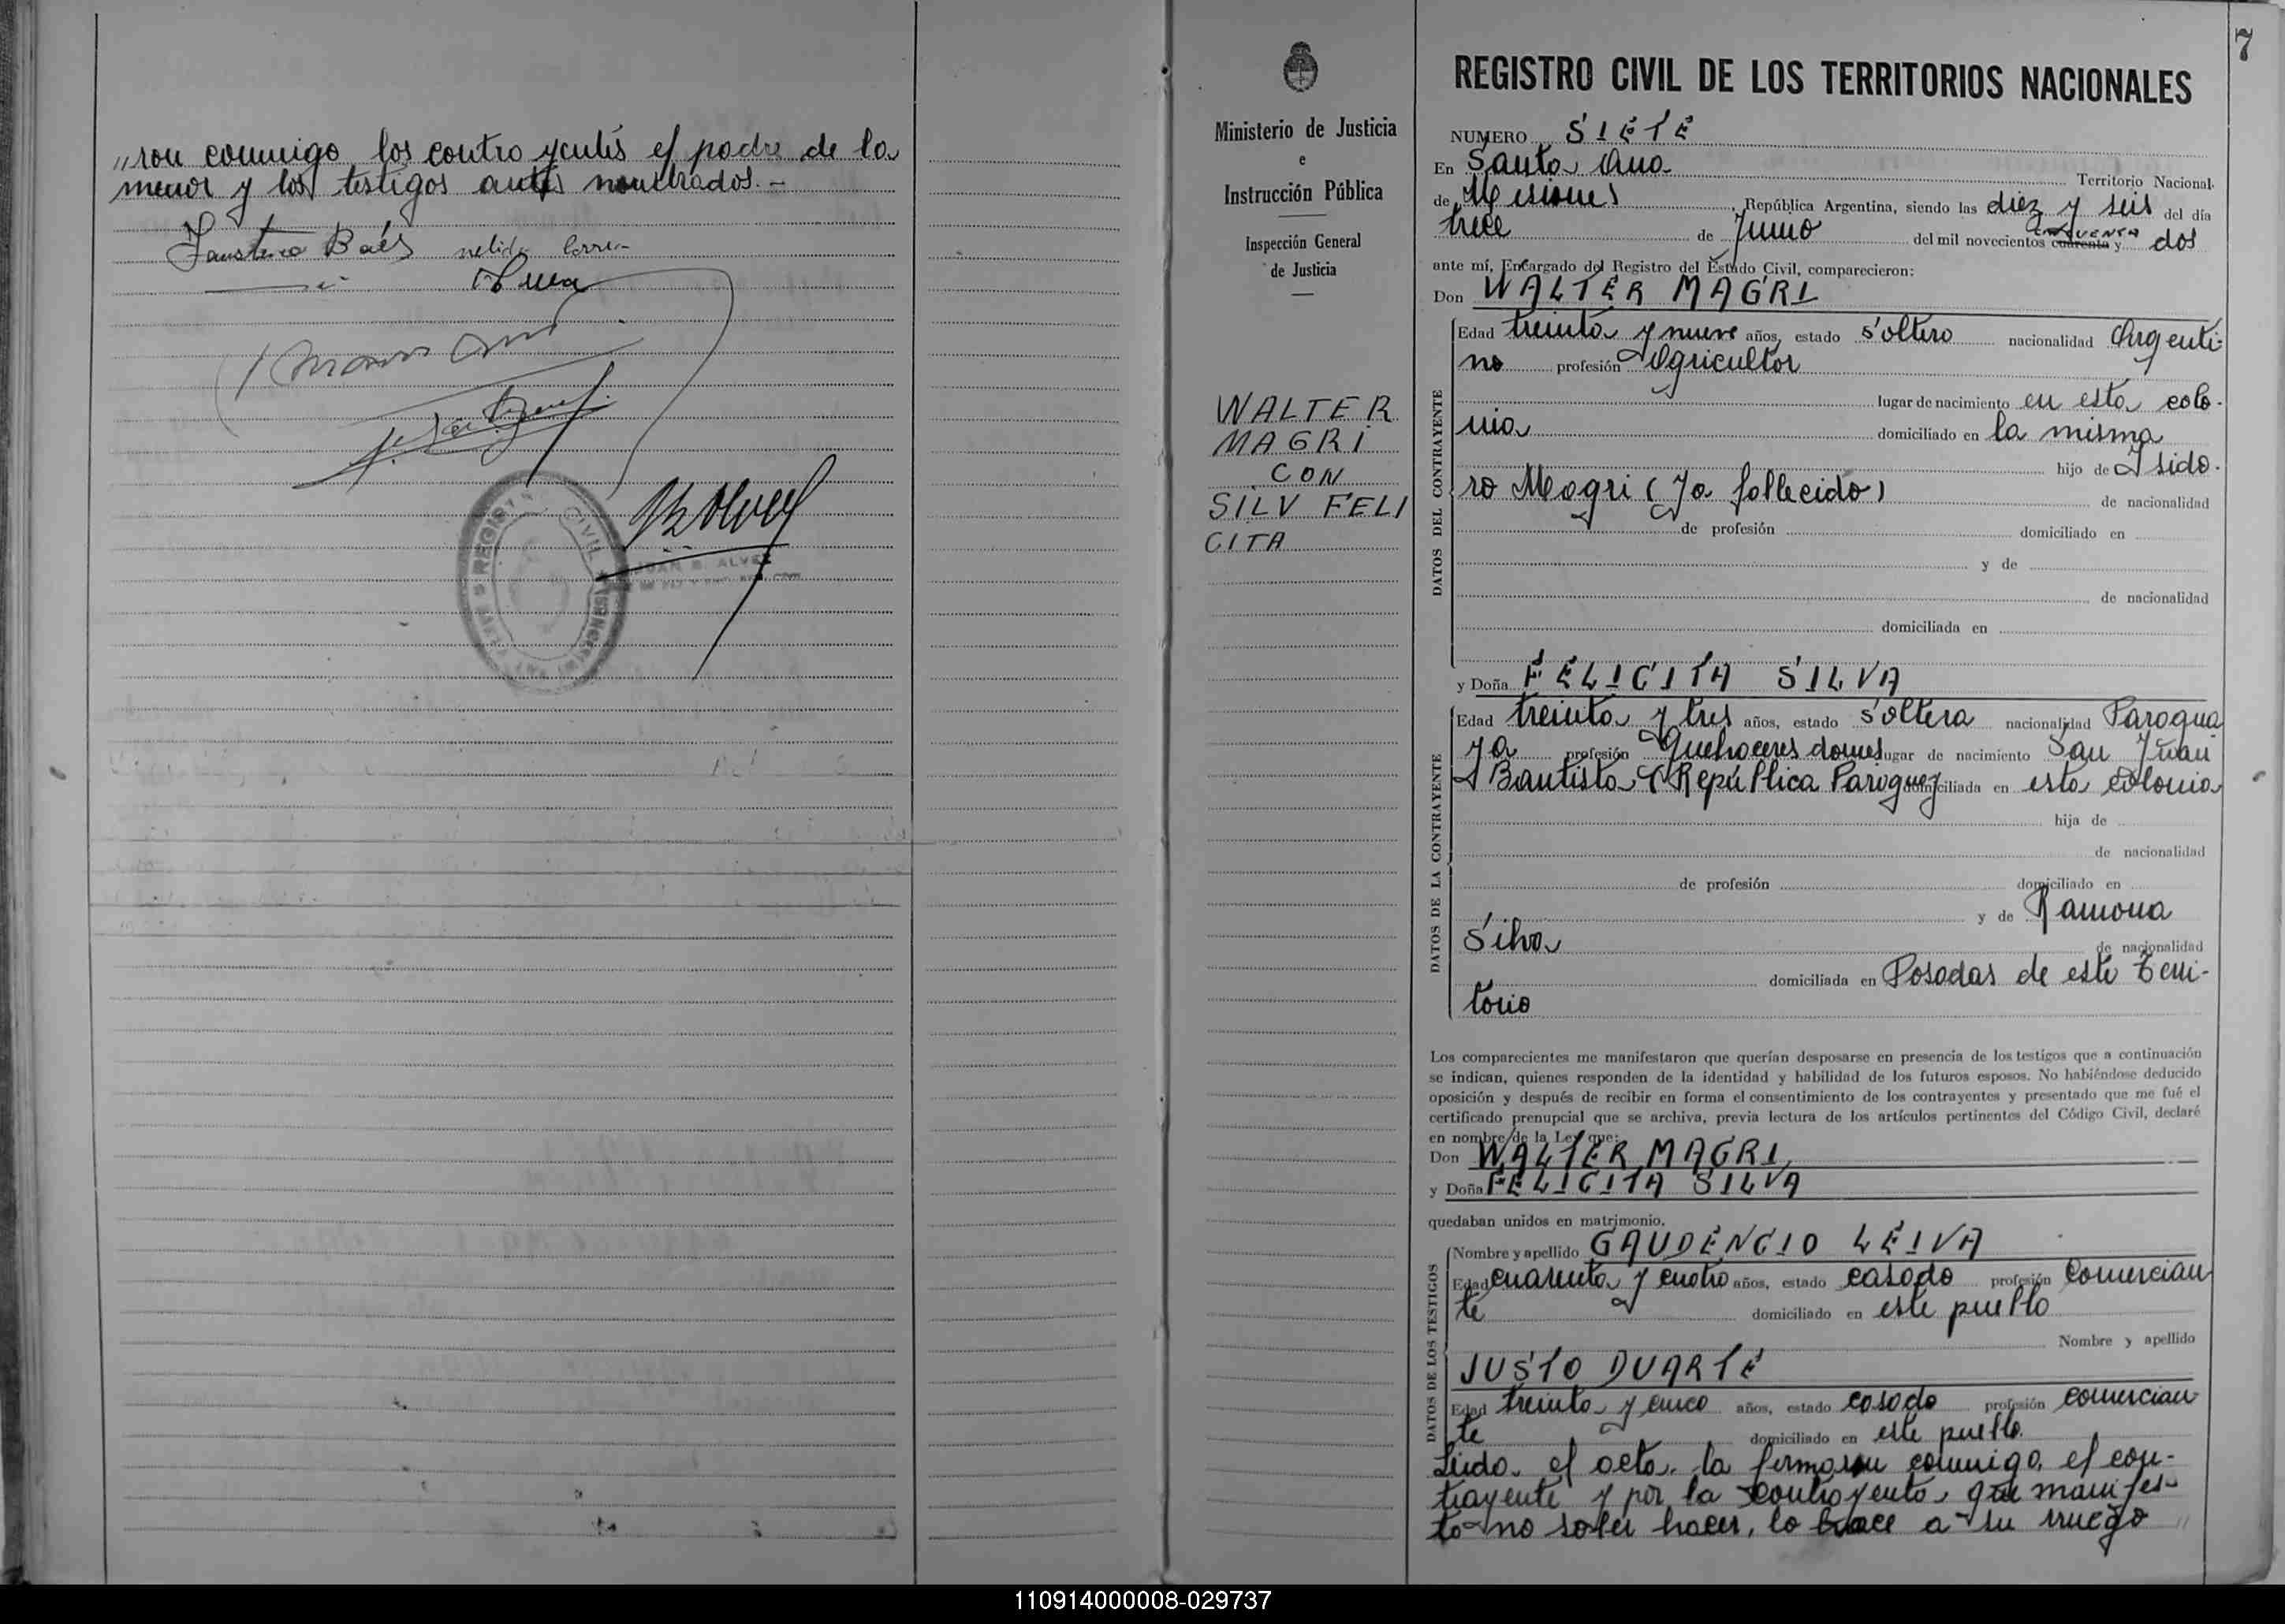 "ron conmigo los contrayentes el padre de la
menor y los testigos antes nombrados.-
Faustino Baés nelida
REGISTRO CIVIL
JUAN B. ALVEZ
7
Ministerio de Justicia
e
Instrucción Pública
Inspección General
de Justicia
WALTER
MAGRI
CON
SILV FELI
CITA
REGISTRO CIVIL DE LOS TERRITORIOS NACIONALES
NUMERO SIETE
En Santa Ana Territorio Nacional
de Misiones, República Argentina, siendo las diez y seis del día
trece de Junio del mil novecientos cuarenta y cincuenta dos
ante mí, Encargado del Registro del Estado Civil, comparecieron:
Don WALTER MAGRI
DATOS DEL CONTRAYENTE
Edad treinta y nueve años, estado soltero nacionalidad Argenti-
no profesión Agricultor
lugar de nacimiento en esta colo-
nia domiciliado en la misma
hijo de Isido-
ro Magri (ya fallecido) de nacionalidad
de profesión domiciliado en
y de
de nacionalidad
domiciliada en
y Doña FELICITA SILVA
DATOS DE LA CONTRAYENTE
Edad treinta y tres años, estado soltera nacionalidad Paragua
ya profesión Quehaceres domes lugar de nacimiento San Juan
Bautista (República Paraguay domiciliada en esta colonia
hija de
de nacionalidad
de profesión domiciliado en
y de Ramona
Silva de nacionalidad
domiciliada en Posadas de este Terri-
torio
Los comparecientes me manifestaron que querían desposarse en presencia de los testigos que a continuación
se indican, quienes responden de la identidad y habilidad de los futuros esposos. No habiéndose deducido
oposición y después de recibir en forma el consentimiento de los contrayentes y presentado que me fué el
certificado prenupcial que se archiva, previa lectura de los artículos pertinentes del Código Civil, declaré
en nombre de la Ley que:
Don WALTER MAGRI
y Doña FELICITA SILVA
quedaban unidos en matrimonio.
DATOS DE LOS TESTIGOS
Nombre y apellido GAUDENCIO LEIVA
Edad cuarenta y cuatro años, estado casado profesión Comercian
te domiciliado en este pueblo
Nombre y apellido
JUSTO DUARTE
Edad treinta y cinco años, estado casado profesión comercian
te domiciliado en este pueblo.
Leida el acta la firmaron conmigo, el con-
trayente y por la contrayente, que manifes-
tó no saber hacer, lo hace a su ruego "
110914000008-029737